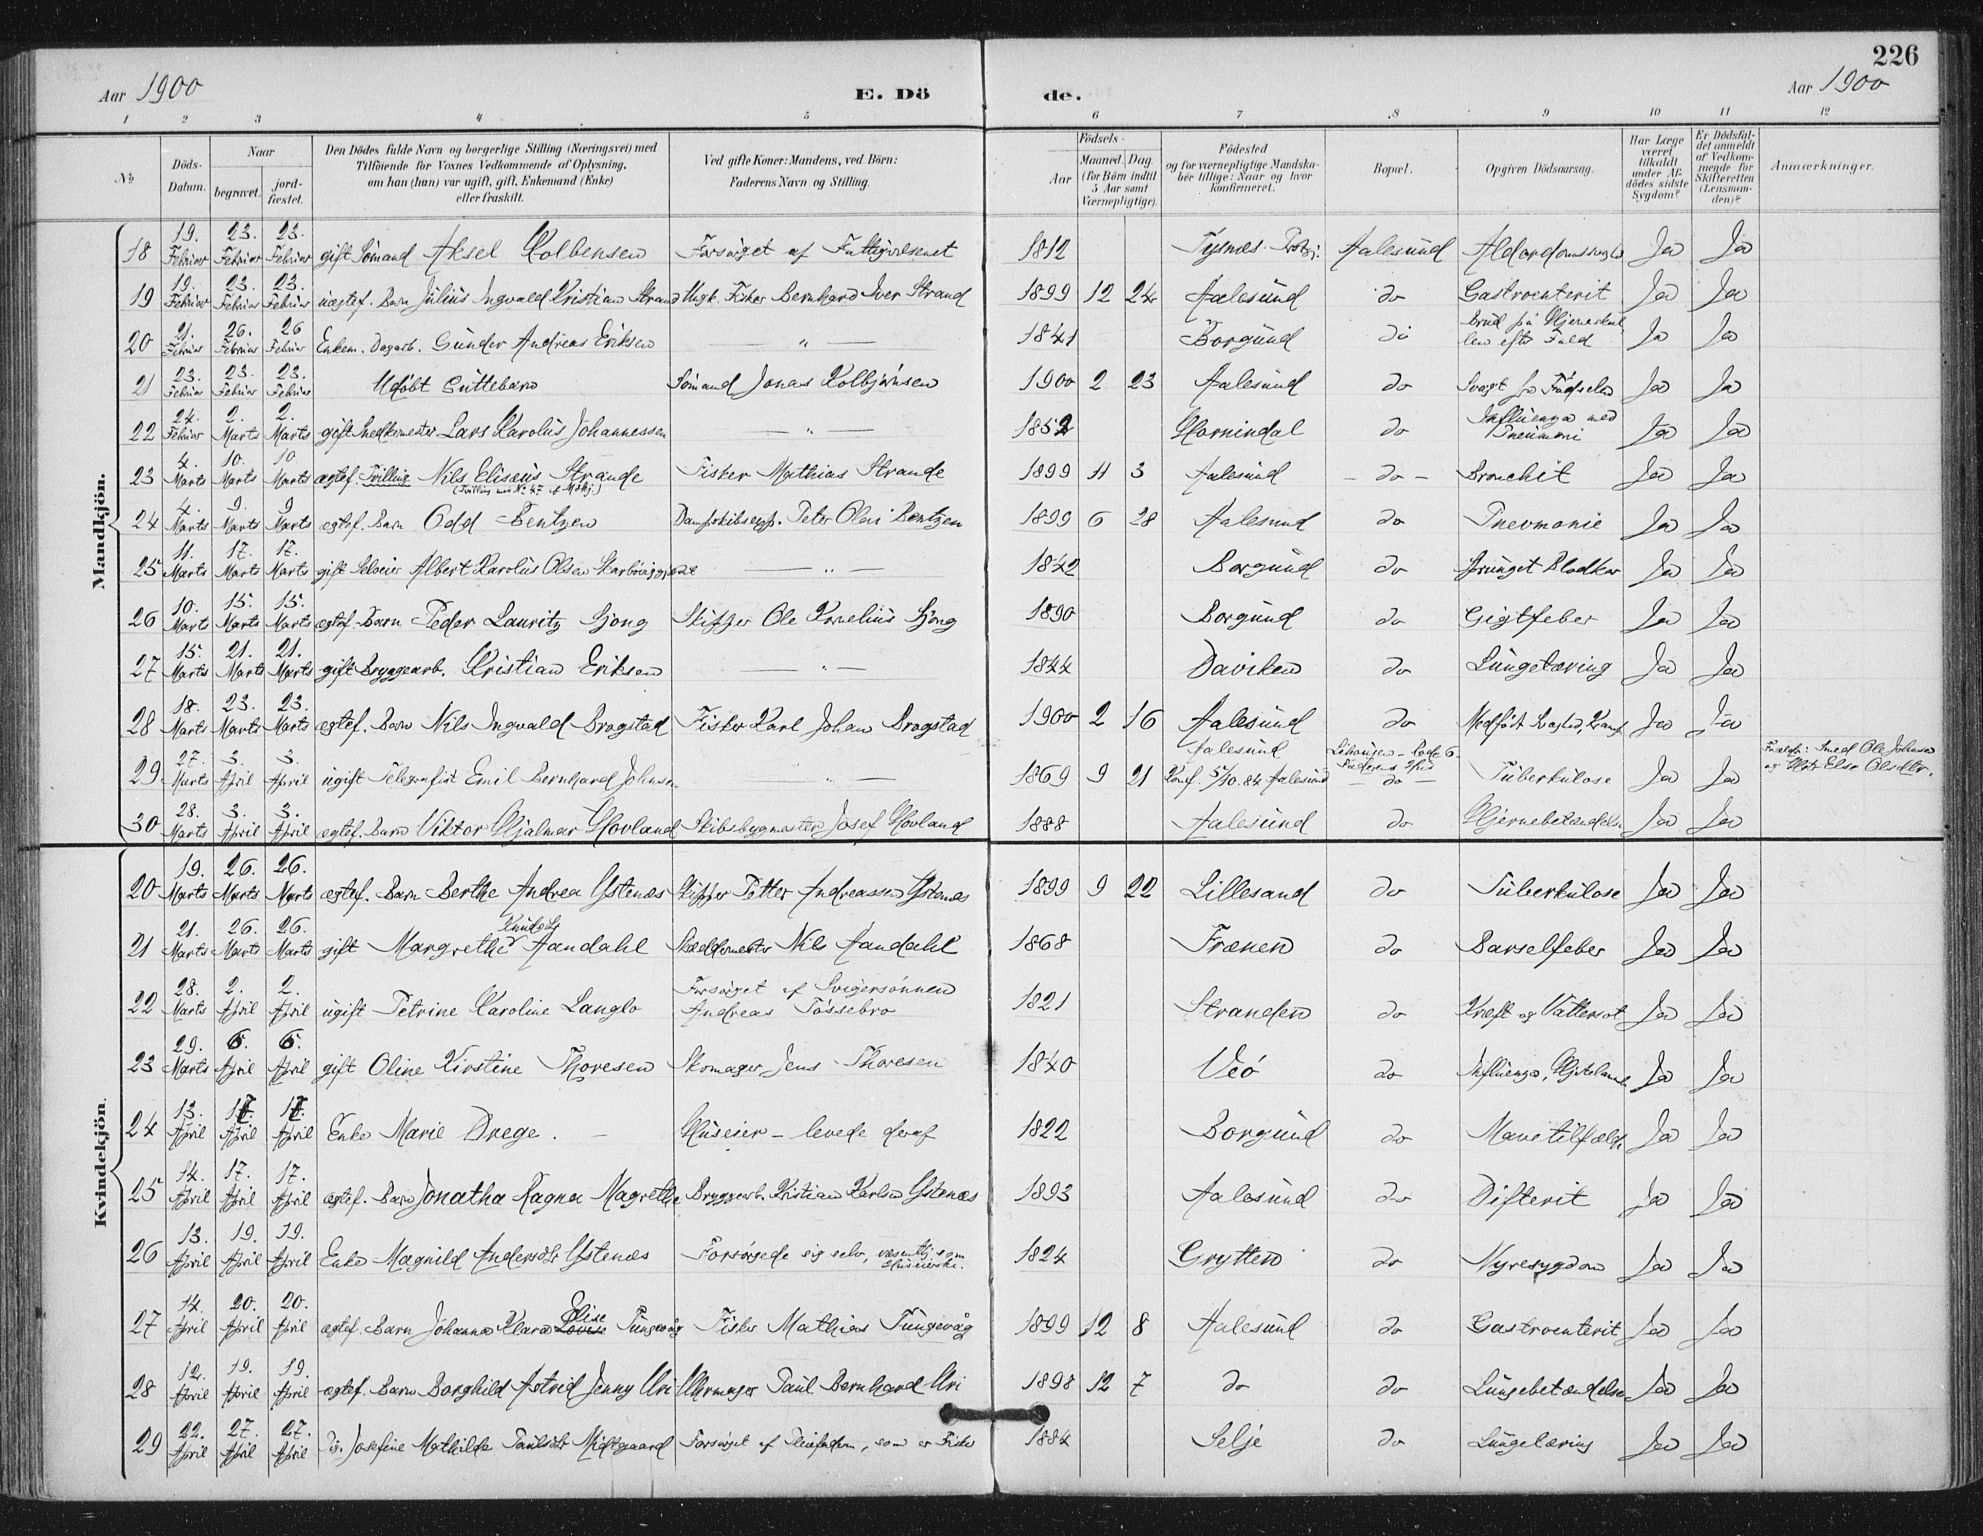 226
Aar 1900 E. Dö de. Aar 1900
1 2 3 4 5 6 7 8 9 10 11 12
№
Döds-Datum.
Naar begravet. jordfæstet.
Den Dödes fulde Navn og borgerlige Stilling (Næringsvei) med Tilföiende for Voxnes Vedkommende af Oplysning, om han (hun) var ugift, gift, Enkemand (Enke) eller fraskilt.
Ved gifte Koner: Mandens, ved Börn: Faderens Navn og Stilling.
Födsels-
Aar Maaned. Dag. (for Börn indtil 5 Aar samt Værnepligtige).
Födested og for værnepligtige Mandskaber tillige: Naar og hvor konfirmeret.
Bopæl.
Opgiven Dödsaarsag.
Har Læge været tilkaldt under Afdödes sidste Sygdom?
Er Dödsfaldet anmeldt af Vedkommende for Skifteretten (Lensmanden)?
Anmærkninger.
Mandkjön.
18 19. Februar 23. Februar 23. Februar gift Sömand Aksel Kolbensen Forsörget af Fattigvæsenet 1812 Tysnæs Aalesund Ja Ja
19 19. Februar 23. Februar 23. Februar uægtef. Barn Julius Ingvald Kristian Strand Ungk. Fisker Bernhard Iver Strand 1899 12 24 Aalesund do Gastroenterit Ja Ja
20 21. Februar 26. Februar 26 Februar Enkem. Dagarb. Gunder Andreas Eriksen — " — 1841 Borgund do Brud på Hjerneskallen efter Fald Ja Ja
21 23. Februar 23. Februar 23. Februar Udöbt Guttebarn Sömand Jonas Kolbjörnsen 1900 2 23 Aalesund do Svagt fra Födselen Ja Ja
22 24. Februar 2. Marts 2. Marts gift Snedkermester Lars Karolus Johannessen — " — 1852 Hornindal do Influenza med Pneumoni Ja Ja
23 4. Marts 10. Marts 10 Marts ægtef. Tvilling Nils Elisæus Strande Fisker Mathias Strande 1899 11 3 Aalesund - do - Bronchit Ja Ja
24 4. Marts 9. Marts 9 Marts ægtef. Barn Odd Bentzen Dampskibsexp. Peter Olai Bentzen 1899 6 28 Aalesund do Pnevmonie Ja Ja
25 11. Marts 17. Marts 17. Marts gift Selveier Albert Karolus Olsen — " — 1842 Borgund do Sprunget Blodkar Ja Ja
26 10. Marts 15. Marts 15. Marts ægtef. Barn Peder Lauritz Gjöng Skipper Ole Kornelius Gjöng 1890 Borgund do Gigtfeber Ja Ja
27 15. Marts 21. Marts 21. Marts gift Bryggearb. Kristian Eriksen — " — 1844 Daviken do Lungetæring Ja Ja
28 18. Marts 23. Marts 23. Marts ægtef. Barn Nils Ingvald Bragstad Fisker Karl Johan Bragstad 1900 2 16 Aalesund do Medfödt Svaghed, Krampe Ja Ja
29 27. Marts 3. April 3. April ugift Telegrafist Emil Bernhard Johnsen — " — 1869 9 21 Aalesund Konf. 5/10. 84 Aalesund - do - Tuberkulose Ja Ja Forældr: Smed Ole Johnsen
30 28. Marts 3. April 3. April ægtef. Barn Viktor Hjalmar Hovland Skibsbygmester Josef Hovland 1888 Aalesund do Hjernebetændelse Ja Ja
Kvindekjön.
20 19. Marts 26. Marts 26. Marts ægtef. Barn Berthe Andrea Ystenæs Skipper Petter Andreassen Ystenæs 1899 9 22 Lillesand do Tuberkulose Ja Ja
21 21. Marts 26. Marts 26. Marts gift Margrethe Knudsdtr Aandahl Nils Aandahl 1868 Frænen do Barselfeber Ja Ja
22 28. Marts 2. April 2. April ugift Petrine Karoline Langlo Forsörget af Svigersönnen Andreas Tössebro 1821 Stranden do Kræft og Vattersot Ja Ja
23 29. Marts 6. April 6. April gift Oline Kirstine Thoresen Skomager Jens Thoresen 1840 Veö do Influenza, Hjertelam Ja Ja
24 13. April 17. April 17. April Enke Marie Drege. — Huseier - levede deraf 1822 Borgund do Mavetilfælde Ja Ja
25 14. April 17. April 17. April ægtef. Barn Jonatha Ragna Magrethe Bryggearb. Kristian Karlsen Ystenæs 1893 Aalesund do Difterit Ja Ja
26 13. April 19. April 19. April Enke Magnild Andersdtr Ystenæs Forsörgede sig selv, 1824 Grytten do Nyresygdom Ja Ja
27 14. April 20. April 20. April ægtef. Barn Johanna Klara Elise Tungevåg Fisker Mathias Tungevåg 1899 12 8 Aalesund do Gastroenterit Ja Ja
28 12. April 19. April 19. April ægtef. Barn Borghild Astrid Jenny Uri Uhrmager Paul Bernhard Uri 1898 12 7 do do Lungebetændelse Ja Ja
29 22. April 27. April 27. April Pg. Josefine Mathilde Paulsdtr Midtgaard Forsörget af Pleiefaderen, som er Fisker 1884 Selje do Lungetæring Ja Ja